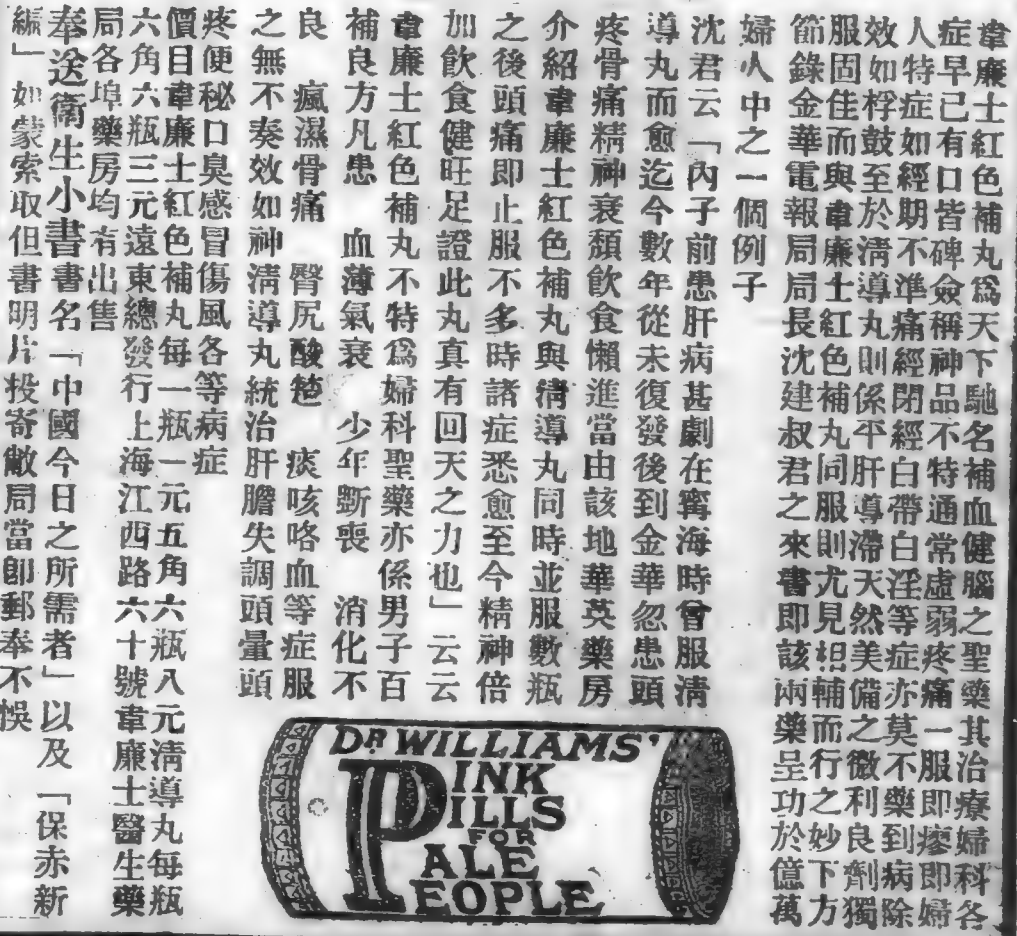 韋廉士紅色補丸爲天下馳名補血健腦之聖藥其治療婦科各
症早已有口皆碑僉稱神品不特通常虛弱疼痛一服即瘳即婦
人特症如經期不準痛經閉經白帶白淫等症亦莫不藥到病除
效如桴鼓至於淸導丸則係平肝導滯天然美備之微利良劑獨
服固佳而與韋廉士紅色補丸同服則尤見相輔而行之妙下方
節錄金華電報局局長沈建叔君之來書即該兩藥呈功於億萬
婦人中之一個例子
沈君云「內子前患肝病甚劇在寗海時曾服淸
導丸而愈迄今數年從未復發後到金華忽患頭
疼骨痛精神衰頹飲食懶進當由該地華英藥房
介紹韋廉士紅色補丸與淸導丸同時並服數瓶
之後頭痛即止服不多時諸症悉愈至今精神倍
加飲食健旺足證此丸真有回天之力也」云云
韋廉士紅色補丸不特爲婦科聖藥亦係男子百
補良方凡患 血薄氣衰 少年斲喪 消化不
良 瘋濕骨痛 臀尻酸楚 痰咳咯血等症服
之無不奏效如神淸導丸統治肝膽失調頭暈頭
疼便秘口臭感冒傷風各等病症
價目韋廉士紅色補丸每一瓶一元五角六瓶八元淸導丸每瓶
六角六瓶三元遠東總發行上海江西路六十號韋廉士醫生藥
局各埠藥房均有出售
奉送衛生小書書名「中國今日之所需者」以及「保赤新
編」如蒙索取但書明片投寄敝局當即郵奉不悞
DR WILLIAMS'
PINK
PILLS
FOR
PALE
PEOPLE